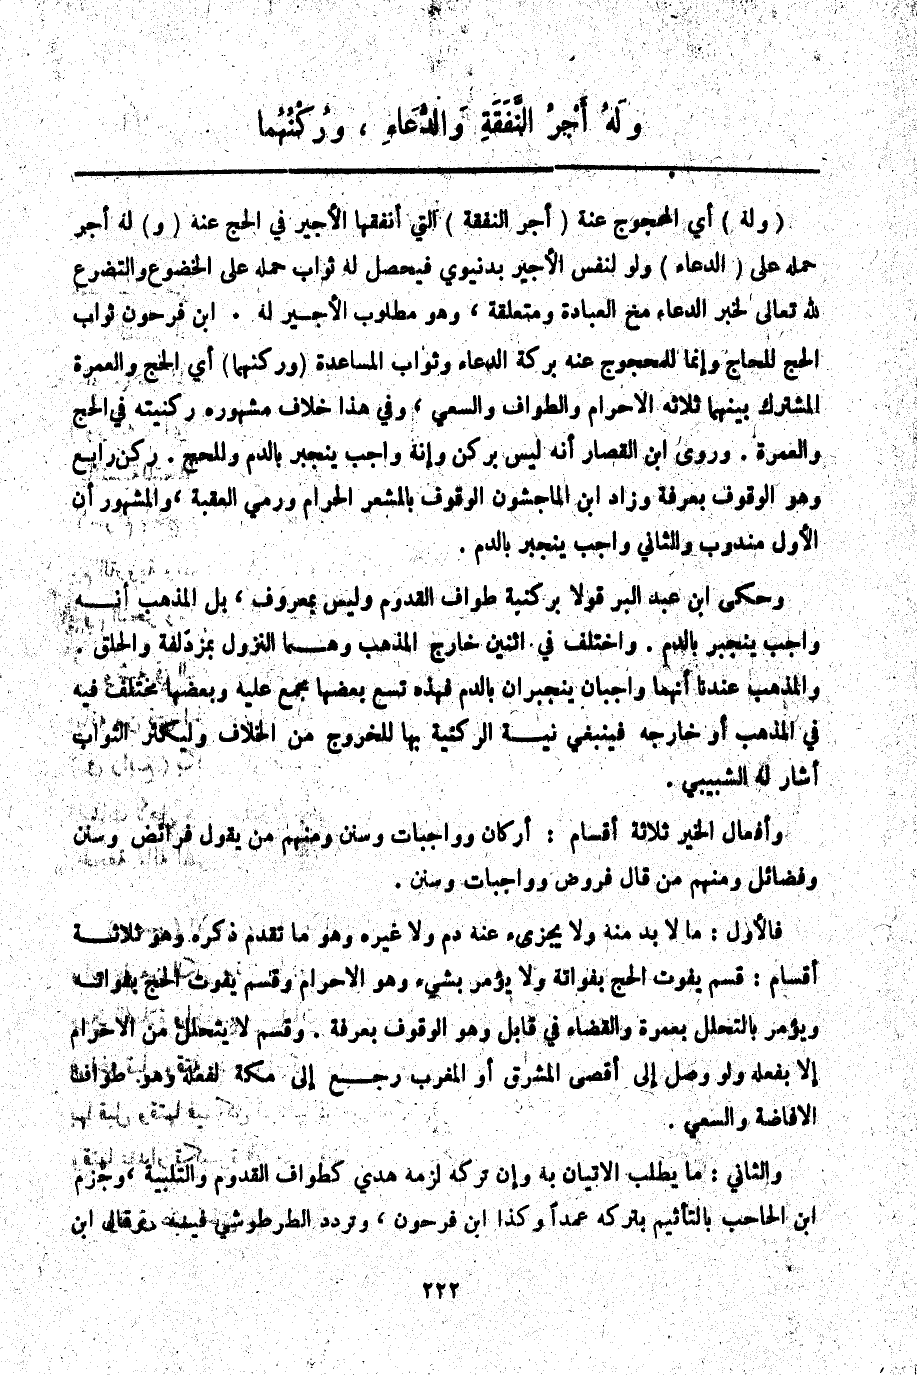 وَلَهُ أَجْرُ النَّفَقَةِ وَالدُّعَاءِ ، ورُكْنُهُما
( وله ) أي المحجوج عنه ( أجر النفقة ) التي أنفقها الأجير في الحج عنه ( و) له أجر
حمله على ( الدعاء ) ولو لنفس الأجير بدنيوي فيحصل له ثواب حمله على الخضوع والتضرع
لله تعالى لخبر الدعاء مخ العبادة ومتعلقة ، وهو مطلوب الأجير له . ابن فرحون ثواب
الحج للحاج وإنما للمحجوج عنه بركة الدعاء وثواب المساعدة (وركنها) أي الحج والعمرة
المشترك بينهما ثلاثه الاحرام والطواف والسعي ، وفي هذا خلاف مشهوره ركنيته في الحج
والعمرة . وروى ابن القصار أنه ليس بركن وإنه واجب ينجبر بالدم وللحج . ركن رابع
وهو الوقوف بعرفة وزاد ابن الماجشون الوقوف بالمشعر الحرام ورمي العقبة ، والمشهور أن
الأول مندوب والثاني واجب ينجبر بالدم .
وحكى ابن عبد البر قولا بركنية طواف القدوم وليس بمعروف ، بل المذهب أنه
واجب ينجبر بالدم . واختلف في اثنين خارج المذهب وهما النزول بمزدلفة والحلق .
والمذهب عندنا أنهما واجبان ينجبران بالدم فهذه تسع بعضها مجمع عليه وبعضها مختلف فيه
في المذهب أو خارجه فينبغي نية الركنية بها للخروج من الخلاف وليكثر الثواب
أشار له الشبيبي .
وأفعال الخير ثلاثة أقسام : أركان وواجبات وسنن ومنهم من يقول فرائض وسنن
وفضائل ومنهم من قال فروض وواجبات وسنن .
فالأول : ما لا بد منه ولا يجزىء عنه دم ولا غيره وهو ما تقدم ذكره وهو ثلاثة
أقسام : قسم يفوت الحج بفواتة ولا يؤمر بشيء وهو الاحرام وقسم يفوت الحج بفواته
ويؤمر بالتحلل بعمرة والقضاء في قابل وهو الوقوف بعرفة . وقسم لا يتحلل من الاحرام
إلا بفعله ولو وصل إلى أقصى المشرق أو المغرب رجع إلى مكة لفعله وهو طوافا
الافاضة والسعي .
والثاني : ما يطلب الاتيان به وإن تركه لزمه هدي كطواف القدوم والتلبية ، وجزم
ابن الحاحب بالتأثيم بتركه عمداً وكذا ابن فرحون ، وتردد الطرطوشي فيه وقال ابن
٢٢٢